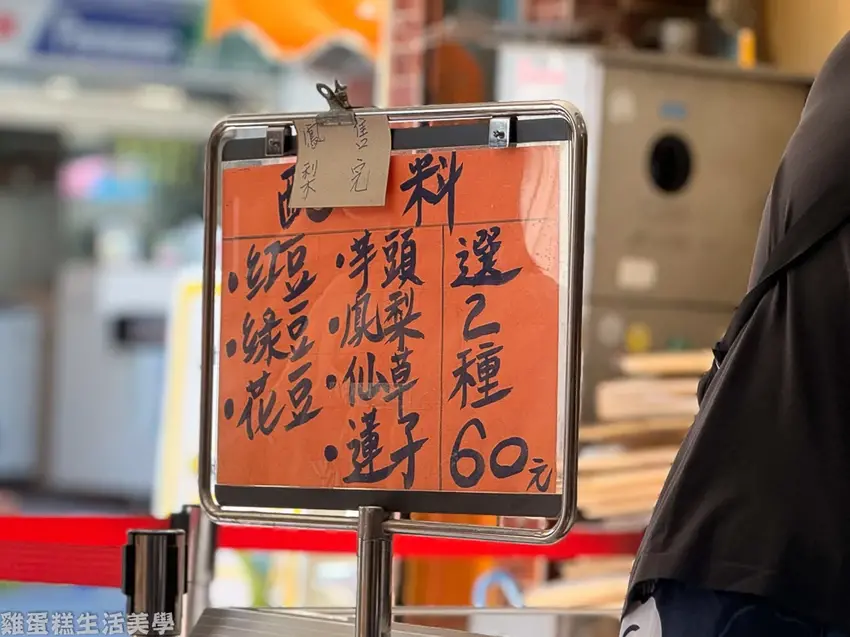 鳳梨
售完
配料
・紅豆 ・芋頭
・綠豆 ・鳳梨
・花豆 ・仙草
・蓮子
選2種60元
雞蛋糕生活美學